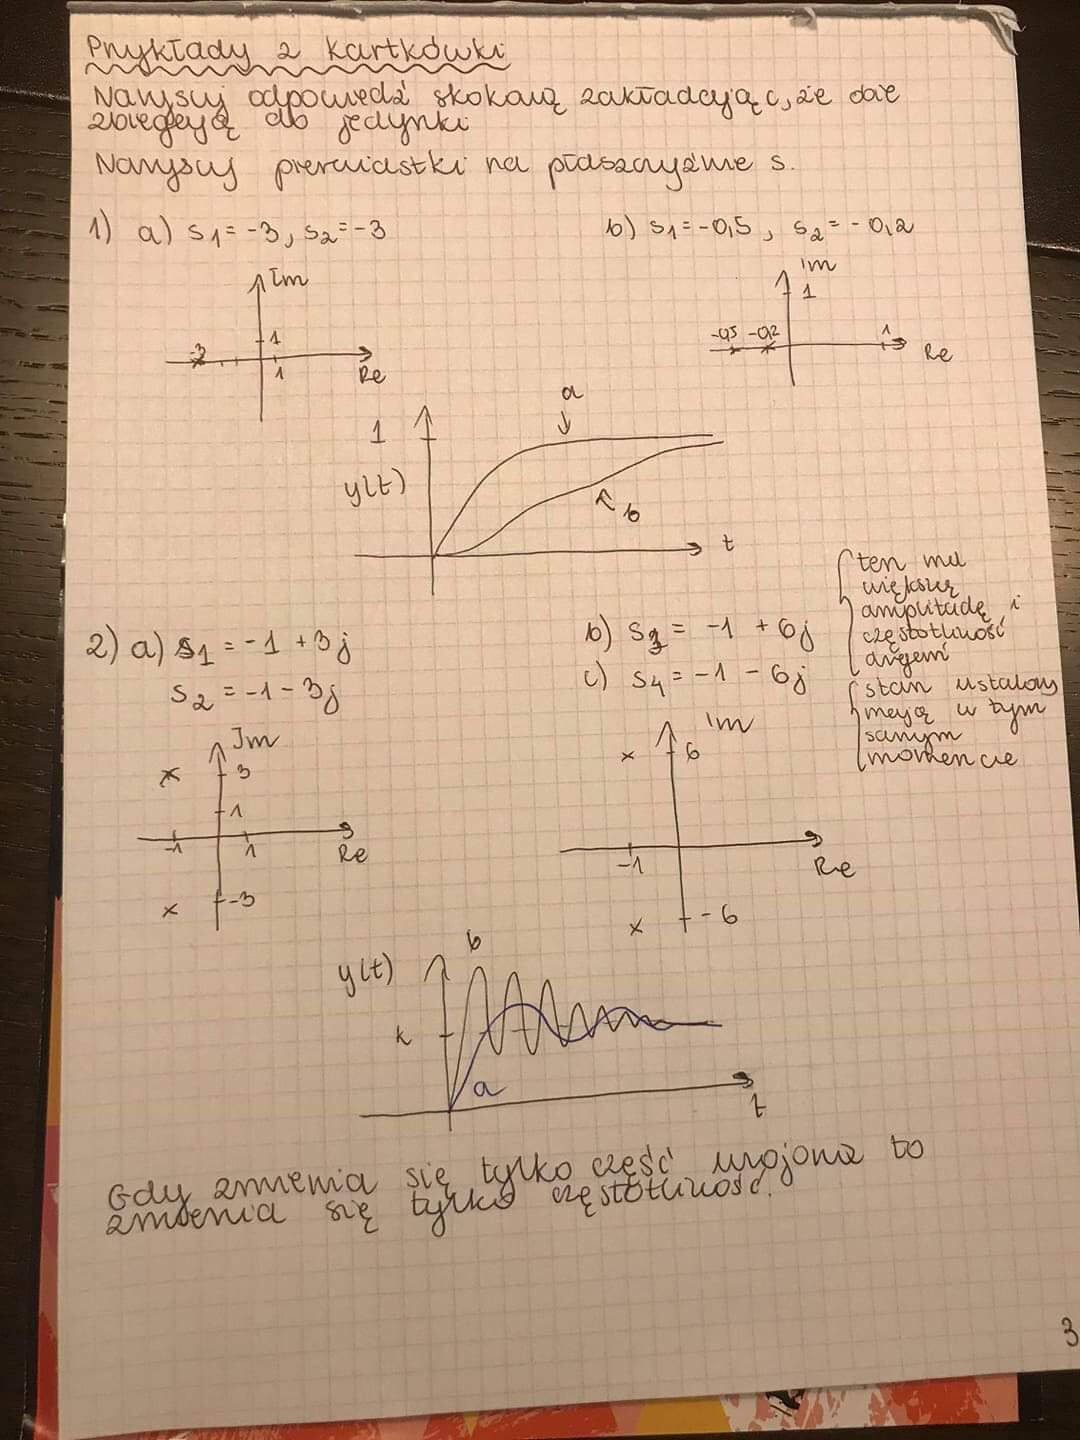 Przykłady z kartkówki
Narysuj odpowiedź skokową zakładając, że obie
zbiegają do jedynki
Narysuj pierwiastki na płaszczyźnie s.
1) a) s₁ = -3, s₂ = -3
b) s₁ = -0,5, s₂ = -0,2
Im
Im
1
1
-3
1
Re
-0,5 -0,2
1
Re
a
1
y(t)
b
t
2) a) s₁ = -1 + 3j
s₂ = -1 - 3j
b) s₃ = -1 + 6j
c) s₄ = -1 - 6j
ten ma
większą
amplitudę i
częstotliwość
drgań
stan ustalony
mają w tym
samym
momencie
Im
3
1
-1
1
Re
-3
Im
6
-1
Re
-6
y(t)
b
k
a
t
Gdy zmienia się tylko część urojona to
zmienia się tylko częstotliwość.
3